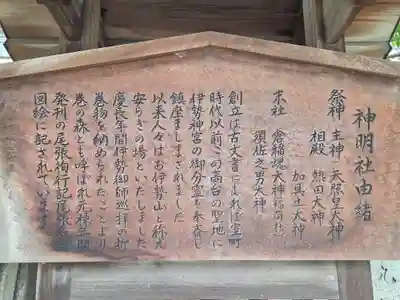 神明社由緒
祭神 主神 天照皇大神
相殿 熱田大神
加具土大神
末社 倉稲魂大神
須佐之男大神
創立は古文書によれば室町
時代以前この高台の聖地に
伊勢神宮の御分霊を奉斎し
鎮座ましまされました
以来人々はお伊勢山と称え
安らぎの場といたしました
慶長年間伊勢御師巡拝の折
巻物を納められたことより
巻の森とも呼ばれ元禄年間
発刊の尾張徇行記尾張名所
図絵に記されています